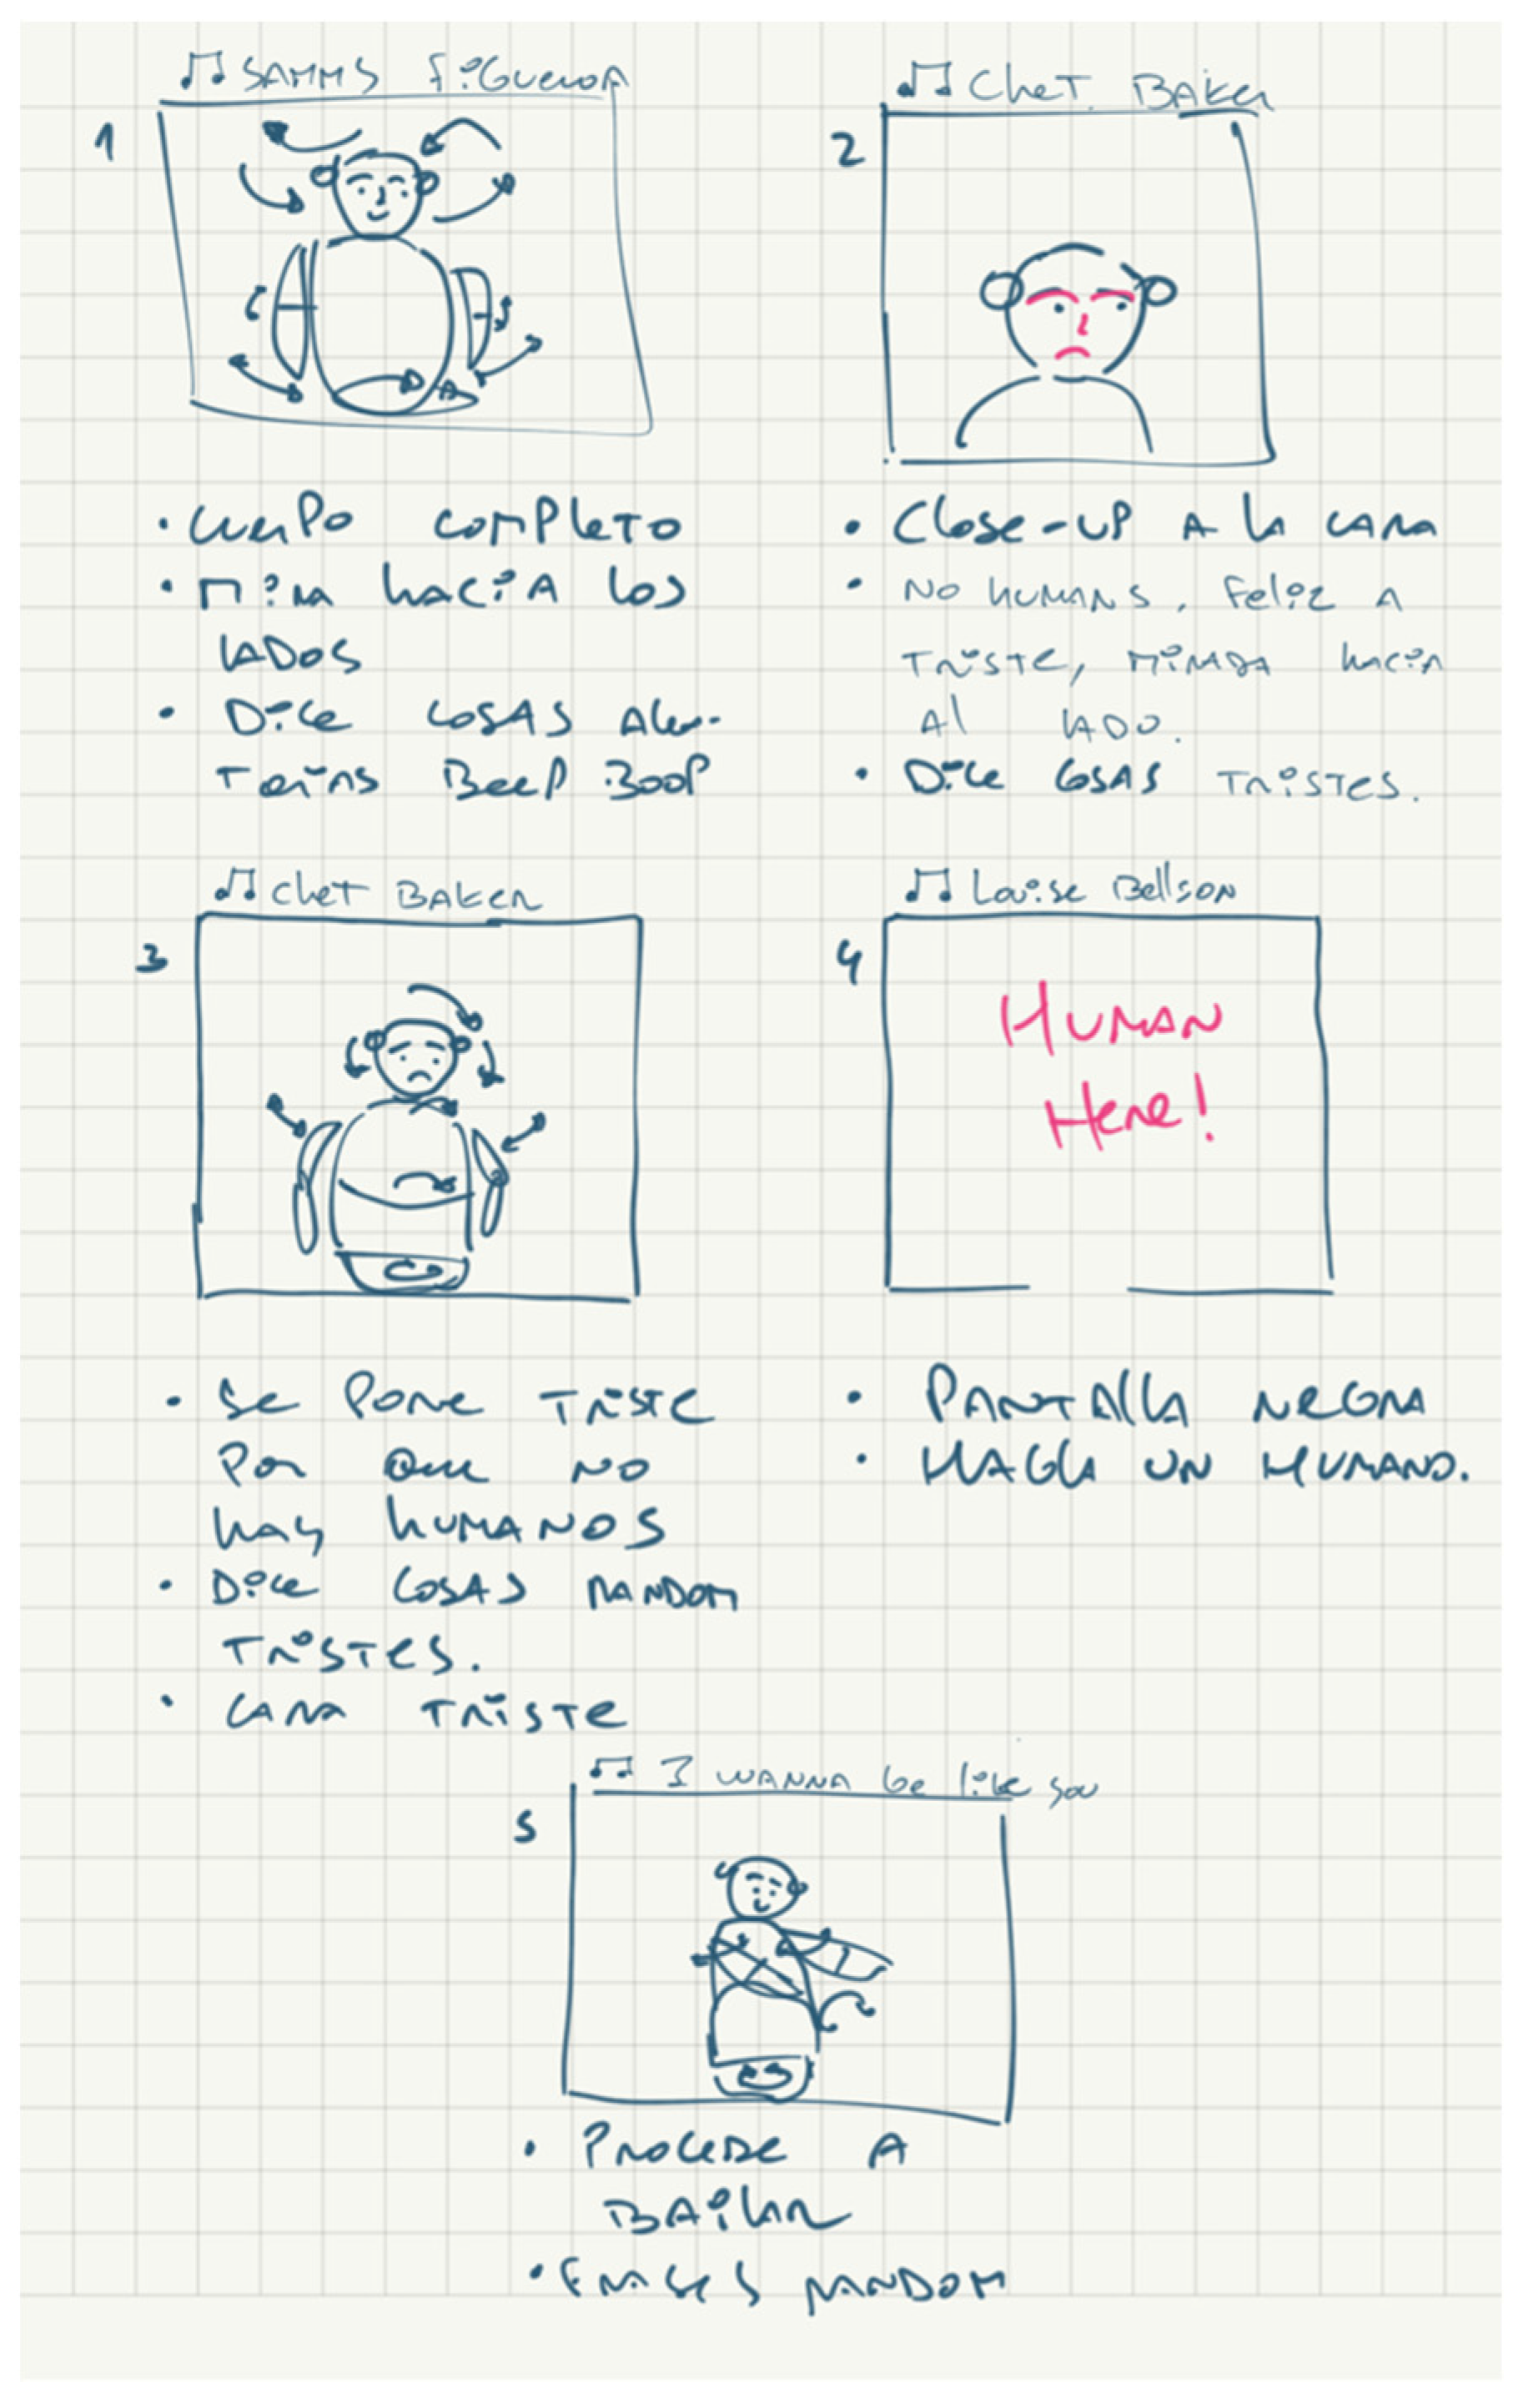 ♫ SAMMY FIGUEROA
1
• CUERPO COMPLETO
• MIRA HACIA LOS
LADOS
• DICE COSAS ALEA-
TORIAS BEEP BOOP
♫ CHET BAKER
2
• CLOSE-UP A LA CARA
• NO HUMANS, FELIZ A
TRISTE, MIRADA HACIA
AL LADO.
• DICE COSAS TRISTES.
♫ CHET BAKER
3
• SE PONE TRISTE
POR QUE NO
HAY HUMANOS
• DICE COSAS RANDOM
TRISTES.
• CARA TRISTE
♫ LOUISE BELLSON
4
HUMAN
HERE!
• PANTALLA NEGRA
• LLAGA UN HUMANO.
♫ I WANNA be like you
5
• PROCEDE A
BAILAR
• RANDOM